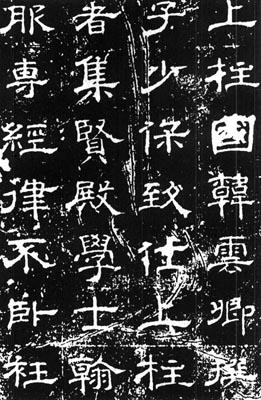 上柱國韓雲卿撰
子少保致仕上柱
者集賢殿學士翰
服專經律不卧衽